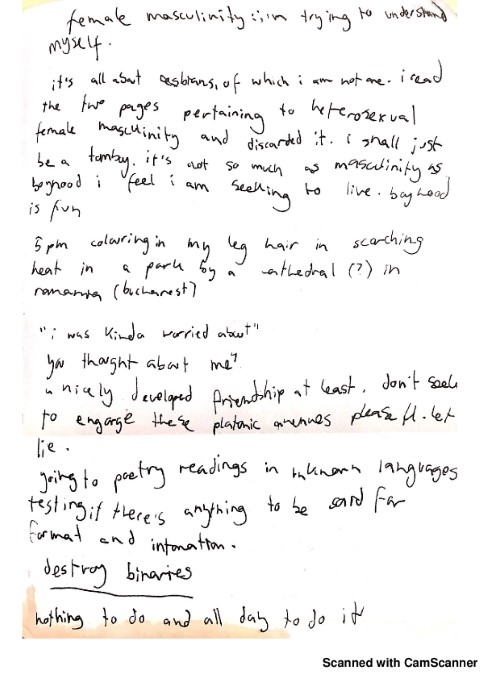 female masculinity :: in trying to understand
myself.
it's all about lesbians, of which i am not one. i read
the two pages pertaining to heterosexual
female masculinity and discarded it. i shall just
be a tomboy. it's not so much as masculinity as
boyhood i feel i am seeking to live. boyhood
is fun
5pm colouring in my leg hair in scorching
heat in a park by a cathedral (?) in
romania (bucharest)
"i was kinda worried about"
you thought about me?
a nicely developed friendship at least. don't seek
to engage these platonic avenues please fl. let
lie.
going to poetry readings in unknown languages
testing if there's anything to be said for
format and intonation.
destroy binaries
nothing to do and all day to do it
Scanned with CamScanner